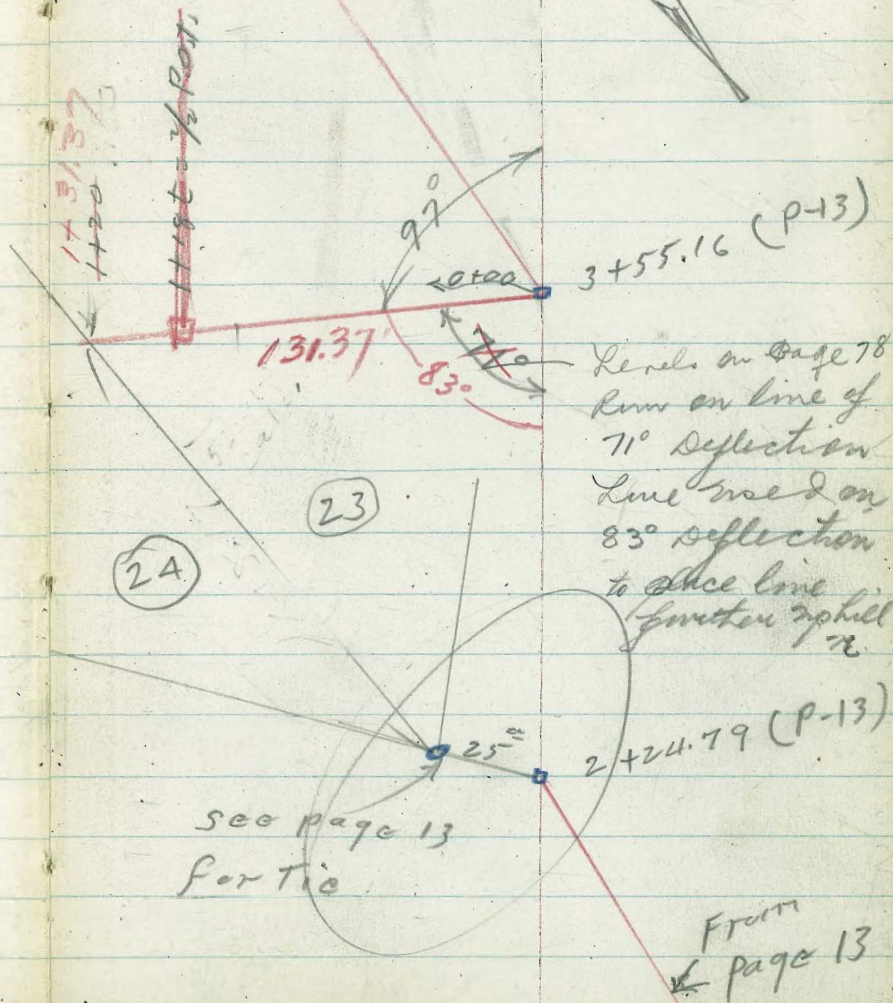 1+31.37
1+20
1+18 = 2/2 Post
97°
<0+00
3+55.16 (P-13)
131.37
71°
83°
Levels on Page 78
Run on line of
71° Deflection
Line used on
83° Deflection
to place line
further uphill
23
24
25
2+24.79 (P-13)
see page 13
for Tie
From
page 13